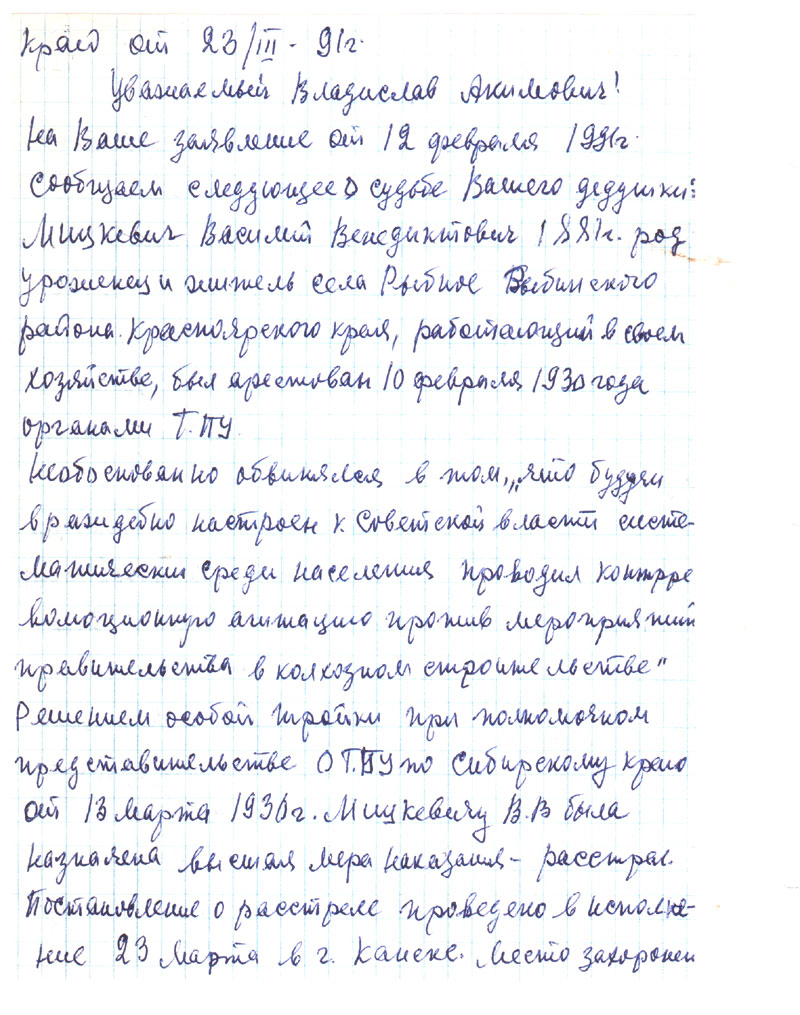 краю от 23/III - 91г.
Уважаемый Владислав Акимович!
На Ваше заявление от 12 февраля 1991г.
Сообщаем следующее о судьбе Вашего дедушки:
Мицкевич Василий Венедиктович 1881г. род
уроженец и житель села Рыбное Рыбинского
района Красноярского края, работающий в своем
хозяйстве, был арестован 10 февраля 1930 года
органами Г.ПУ.
Необоснованно обвинялся в том, „что будучи
враждебно настроен к Советской власти систе-
матически среди населения проводил контрре
волюционную агитацию против мероприятий
правительства в колхозном строительстве"
Решением особой тройки при полномочном
представительстве ОГ.ПУ по Сибирскому краю
от 13 марта 1930г. Мицкевичу В.В была
назначена высшая мера наказания - расстрел.
Постановление о расстреле проведено в исполне-
ние 23 Марта в г. Канске. Место захоронен